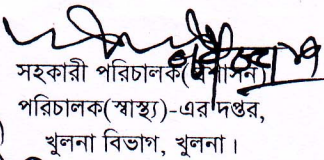 সহকারী পরিচালক(প্রশাসন)
পরিচালক(স্বাস্থ্য)-এর দপ্তর,
খুলনা বিভাগ, খুলনা।